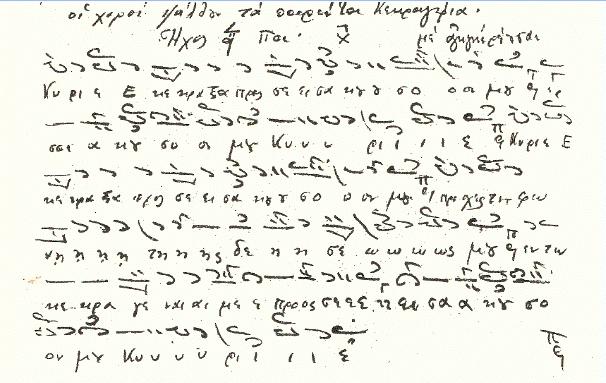 οἱ χοροί ψάλλουν τά παρόντα Κεκραγάρια.
Ἦχος Πα.
Κυ ρι ε Ε κε κρα ξα προς σε ει σα κου σο ο ον μου
σει α κου σο ον μου Κυ υ υ ρι ι ι ι ε Κυριε Ε
κε κρα ξα προς σε ει σα κου σο ο ον μου προσχεςτηφω
νη η η η τη η ης δε η η σε ω ω ω ως μου εν τω
κε κρα γε ναι αι με ε προος σε ε ε ε ει σα α κου σο
ον μου Κυ υ υ υ ρι ι ι ι ε